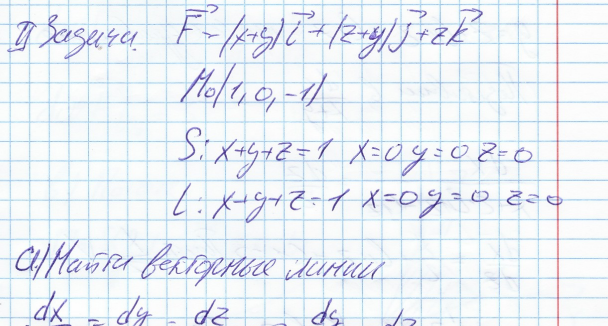 II Задача. F = (x+y)i + (z+y)j + zk
M₀(1, 0, -1)
S: x+y+z=1 x=0 y=0 z=0
L: x+y+z=1 x=0 y=0 z=0
а) Найти векторные линии
dx = dy = dz dy dz